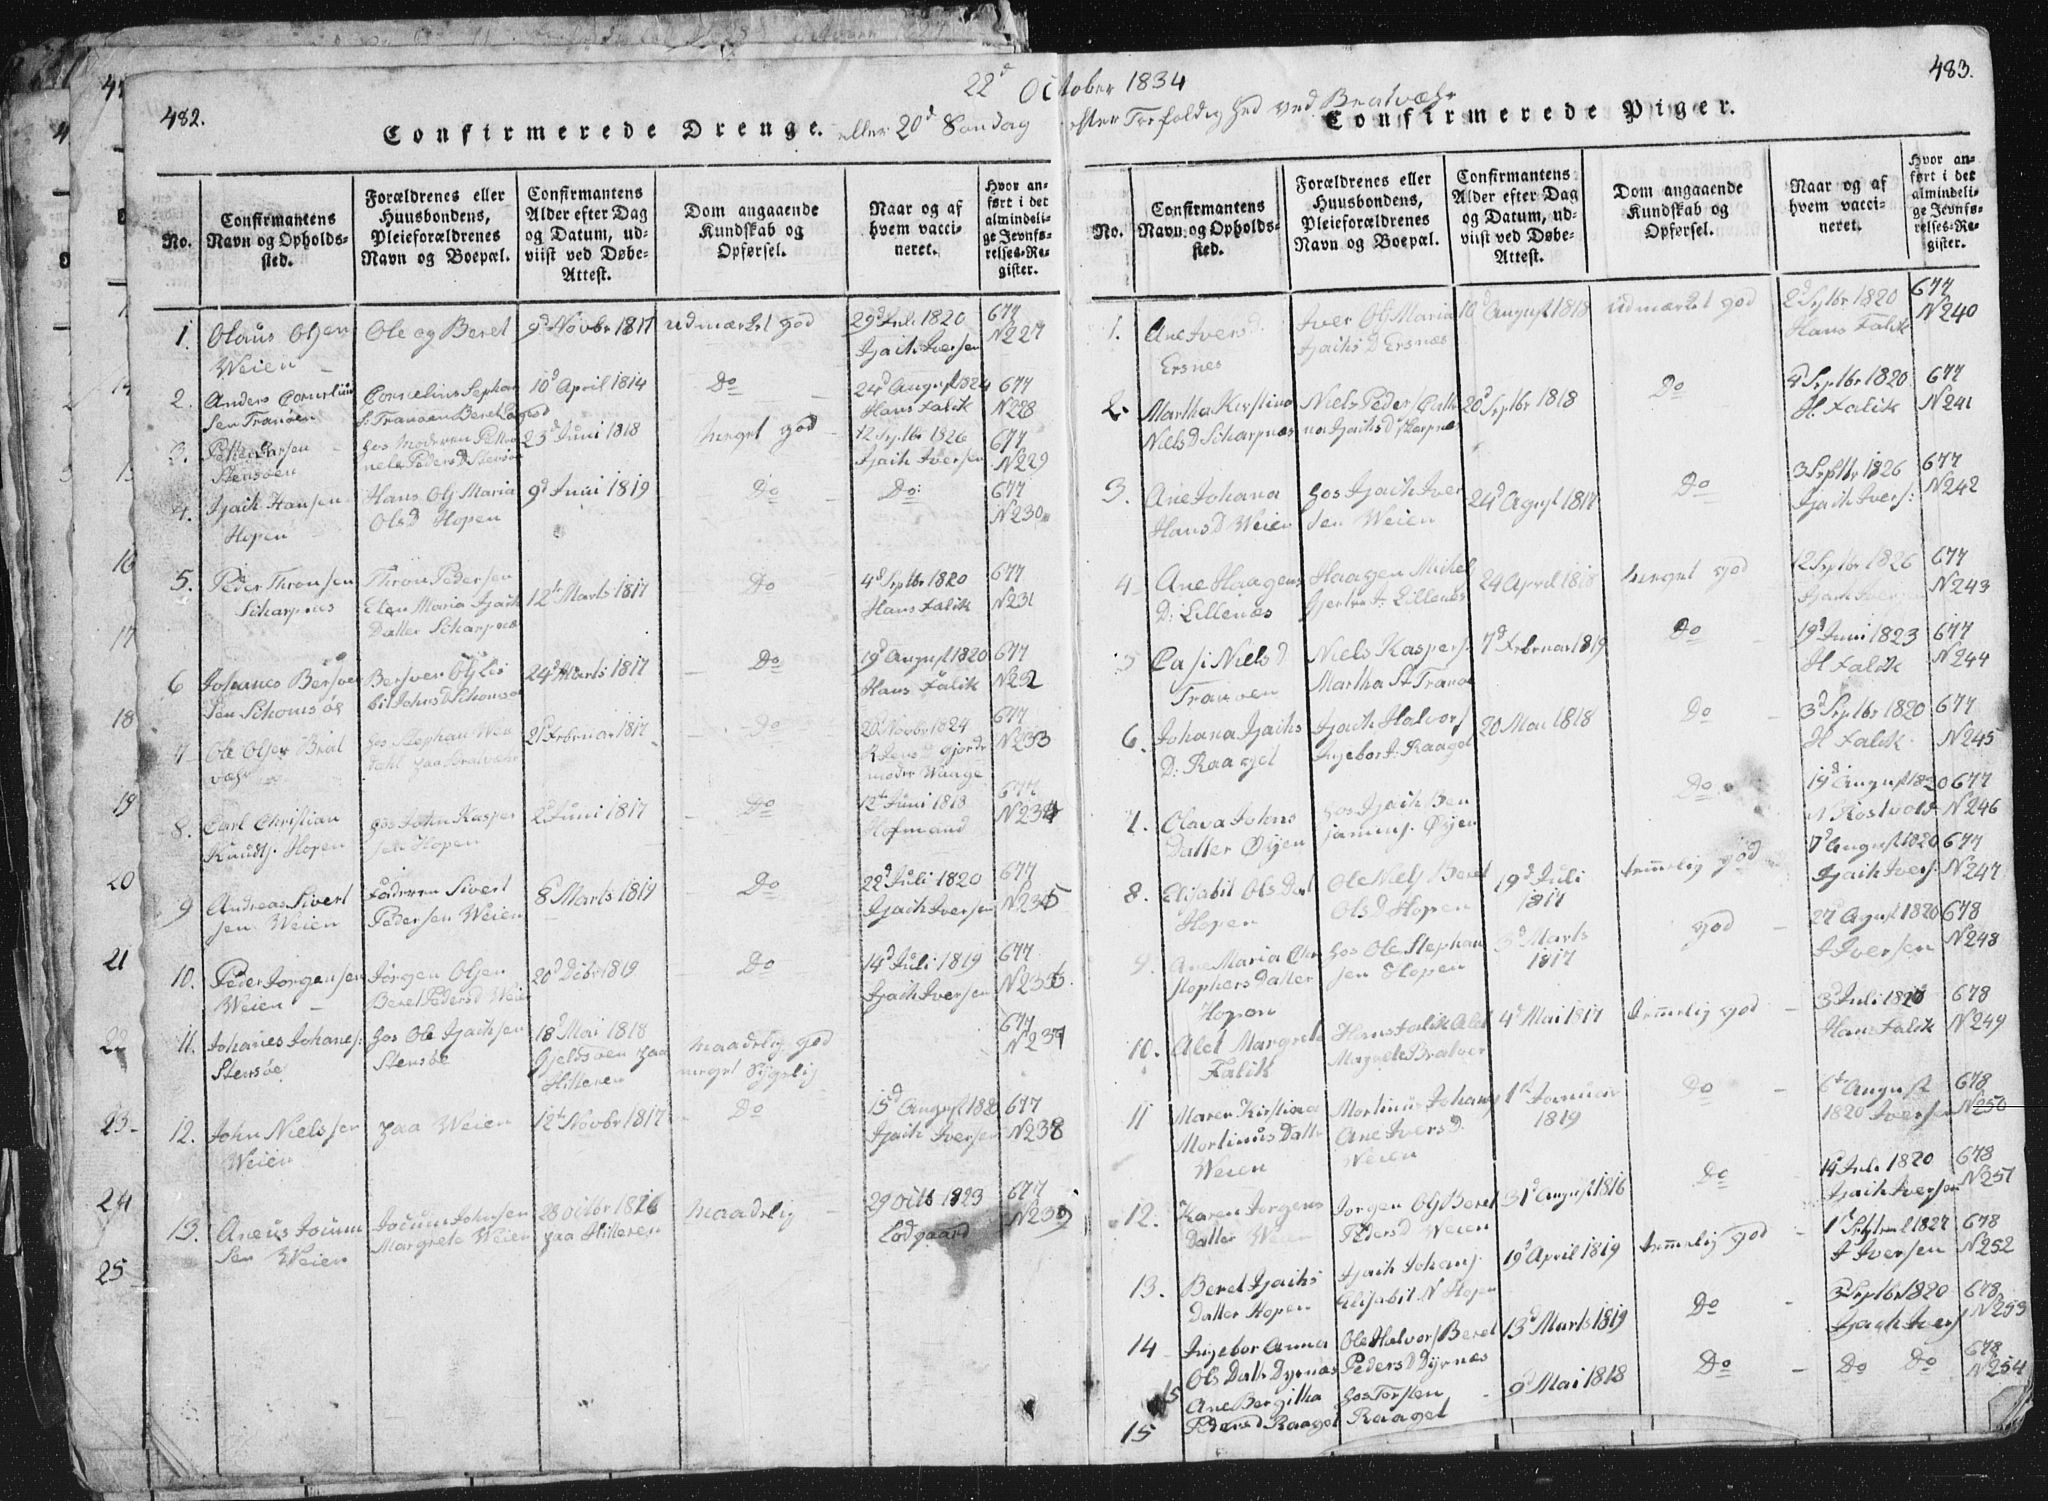 482.
22d October 1834
483.
Confirmerede Drenge.
eller 20d Søndag efter Trefoldighed ved Bratvæhr
Confirmerede Piger.
No.
Confirmantens Navn og Opholds-sted.
Forældrenes eller Huusbondens, Pleieforældrenes Navn og Boepæl.
Confirmantens Alder efter Dag og Datum, ud-viist ved Døbe-Attest.
Dom angaaende Kundskab og Opførsel.
Naar og af hvem vacci-neret.
Hvor an-ført i det almindeli-ge Jevnfø-relses-Re-gister.
1. Olaus Olsen Weien
Ole og Beret
9d Novbr 1817
udmærket god
29d Juli 1820 Isach Iversen
677 N227
2. Anders Corneliussen Tranøen
Cornelius Stephan S. Tranøen Beret
10d April 1814
Do
24d August 1824 Hans Falik
677 N228
3. Petter Larsen Stensøen
hos Moderen Petternele Peders D Stensø
23d Juni 1818
meget god
12 Septbr 1826 Isach Iversen
677 N229
4. Isach Hansen Hopen
Hans Ols Maria Ols D Hopen
9d Juni 1819
Do
Do
677 N230
5. Peder Thronsen Scharpnes
Thron Pedersen Elen Maria Isach Datter Scharpnæs
12t Marts 1817
Do
4d Septbr 1820 Hans Falik
677 N231
6 Johanes Bersvensen Schomsøe
Bersven Ols Lisbit Johns D Schomsø
24d Marts 1817
Do
19d August 1820 Hans Falik
677 N232
7 Ole Olsen Bratvæhr
hos Stephan Wendahl paa Bratvæhr
21d Februar 1817
Do
20d Novbr 1824 Gjordemoder Waage
677 N233
8. Carl Christian Knudts. Hopen
hos John Kaspersen Hopen
2d Juni 1817
Do
12t Juni 1818 Hofmand
677 N234
9 Andreas Sivertsen Weien
Faderen Sivert Pedersen Weien
8d Marts 1819
Do
22d Juli 1820 Isach Iversen
677 N235
10. Peder Jørgensen Weien
Jørgen Olsen Beret Peders D Weien
20d Debr 1819
Do
14d Juli 1819 Isach Iversen
677 N236
11. Johanes Johanes: Stensøe
hos Ole Isachsen Stensøe
18d Mai 1818 Gjeldsøen paa Hitteren
maadelig god meget sygelig
677 N237
12. John Nielssen Weien
paa Weien
12t Novbr 1817
Do
15d August 1820 Isach Iversen
677 N238
13. Aneus Jocumsen Weien
Jocum Johnsen Margrete Weien
28 Octbr 1816 paa Hitteren
maadelig
29 Octb 1823 Lodgaard
677 N239
No.
Confirmantens Navn og Opholds-sted.
Forældrenes eller Huusbondens, Pleieforældrenes Navn og Boepæl.
Confirmantens Alder efter Dag og Datum, ud-viist ved Døbe-Attest.
Dom angaaende Kundskab og Opførsel.
Naar og af hvem vacci-neret.
Hvor an-ført i det almindeli-ge Jevnfø-relses-Re-gister.
1. Ane Ivers D. Ersnes
Iver Ols Maria Isachs D Ersnæs
10d August 1818
udmærket god
2d Septbr 1820 Hans Falik
677 N240
2. Martha Kirstina Niels D Scharpnæs
Niels Peders Isachs D Skarpnæs
20d Septbr 1818
Do
4 Septbr 1820 H Falik
677 N241
3. Ane Johana Hans D Weien
hos Isach Iversen Weien
24d August 1817
Do
3 Septbr 1826 Isach Ivers:
677 N242
4 Ane Haagens D: Lillenes
Haagen Mickel Lillenes
24 April 1818
meget god
12 Septbr 1826 Isach Iversen
677 N243
5 Niels D Tranøen
Niels Kaspers. Martha Tranøe
7d Februar 1819
Do
19d Juni 1823 H Falik
677 N244
6. Johana Isachs D: Raaget
Isach Halvors Ingebor Raaget
20 Mai 1818
Do
3d Septbr 1820 H Falik
677 N245
7. Olava Johns Datter Øyen
hos Isach Benjamins. Øyen
Do
19d August 1820
677 N246
8. Elisabit Ols Dat Hopen
Ole Niels Beret Ols D Hopen
19d Juli 1817
temmelig god
17d August 1820 Isach Ivers:
677 N247
9. Ane Maria Christophers Datter Hopen
hos Ole Stephansen Hopen
3d Marts 1817
god
27d August 1820 I Iversen
678 N248
10. Alet Margrete Falik
Hans Falik Alet Magrete Bratver
4d Mai 1817
temmelig god
Hans Falik
678 N249
11 Maren Kirstina Mortinus Datter Weien
Mortinus Johans Ane Ivers D. Weien
1st Januar 1819
Do
6te August 1820 Iversen
678 N250
12. Karen Jørgens Datter Weien
Jørgen Ols Beret Peders D Weien
31d August 1816
Do
14d Juli 1820 Isach Iversen
678 N251
13. Beret Isachs Datter Hopen
Isach Johans. Elisabit N Hopen
19d April 1819
temmelig god
I Iversen
678 N252
14 Ingebor Anna Ols Datr Dyrnæs
Ole Halvors Beret Peders D Dyrnæs
13d Marts 1819
Do
3d Septbr 1820 Isach Ivers
678 N253
15 Ane Bergitha Peders D Raaget
hos Torsten Raaget
9d Mai 1818
Do
Do Do
678 N254
15
13
16
17
18
19
20
21
22
23
24
25